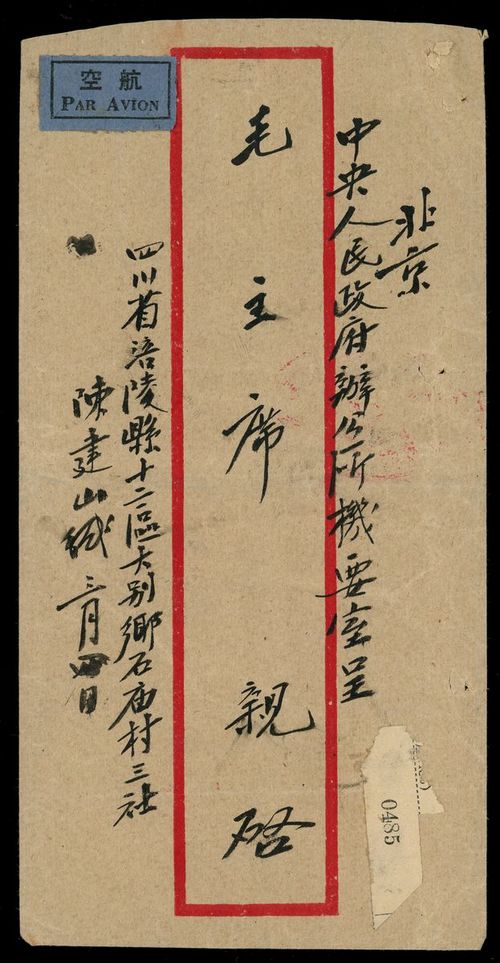 航空
PAR AVION
北京
中央人民政府辦公所機要室呈
毛主席 親啓
四川省涪陵縣十二區大别鄉石庙村三社
陳建山緘 三月四日
0485